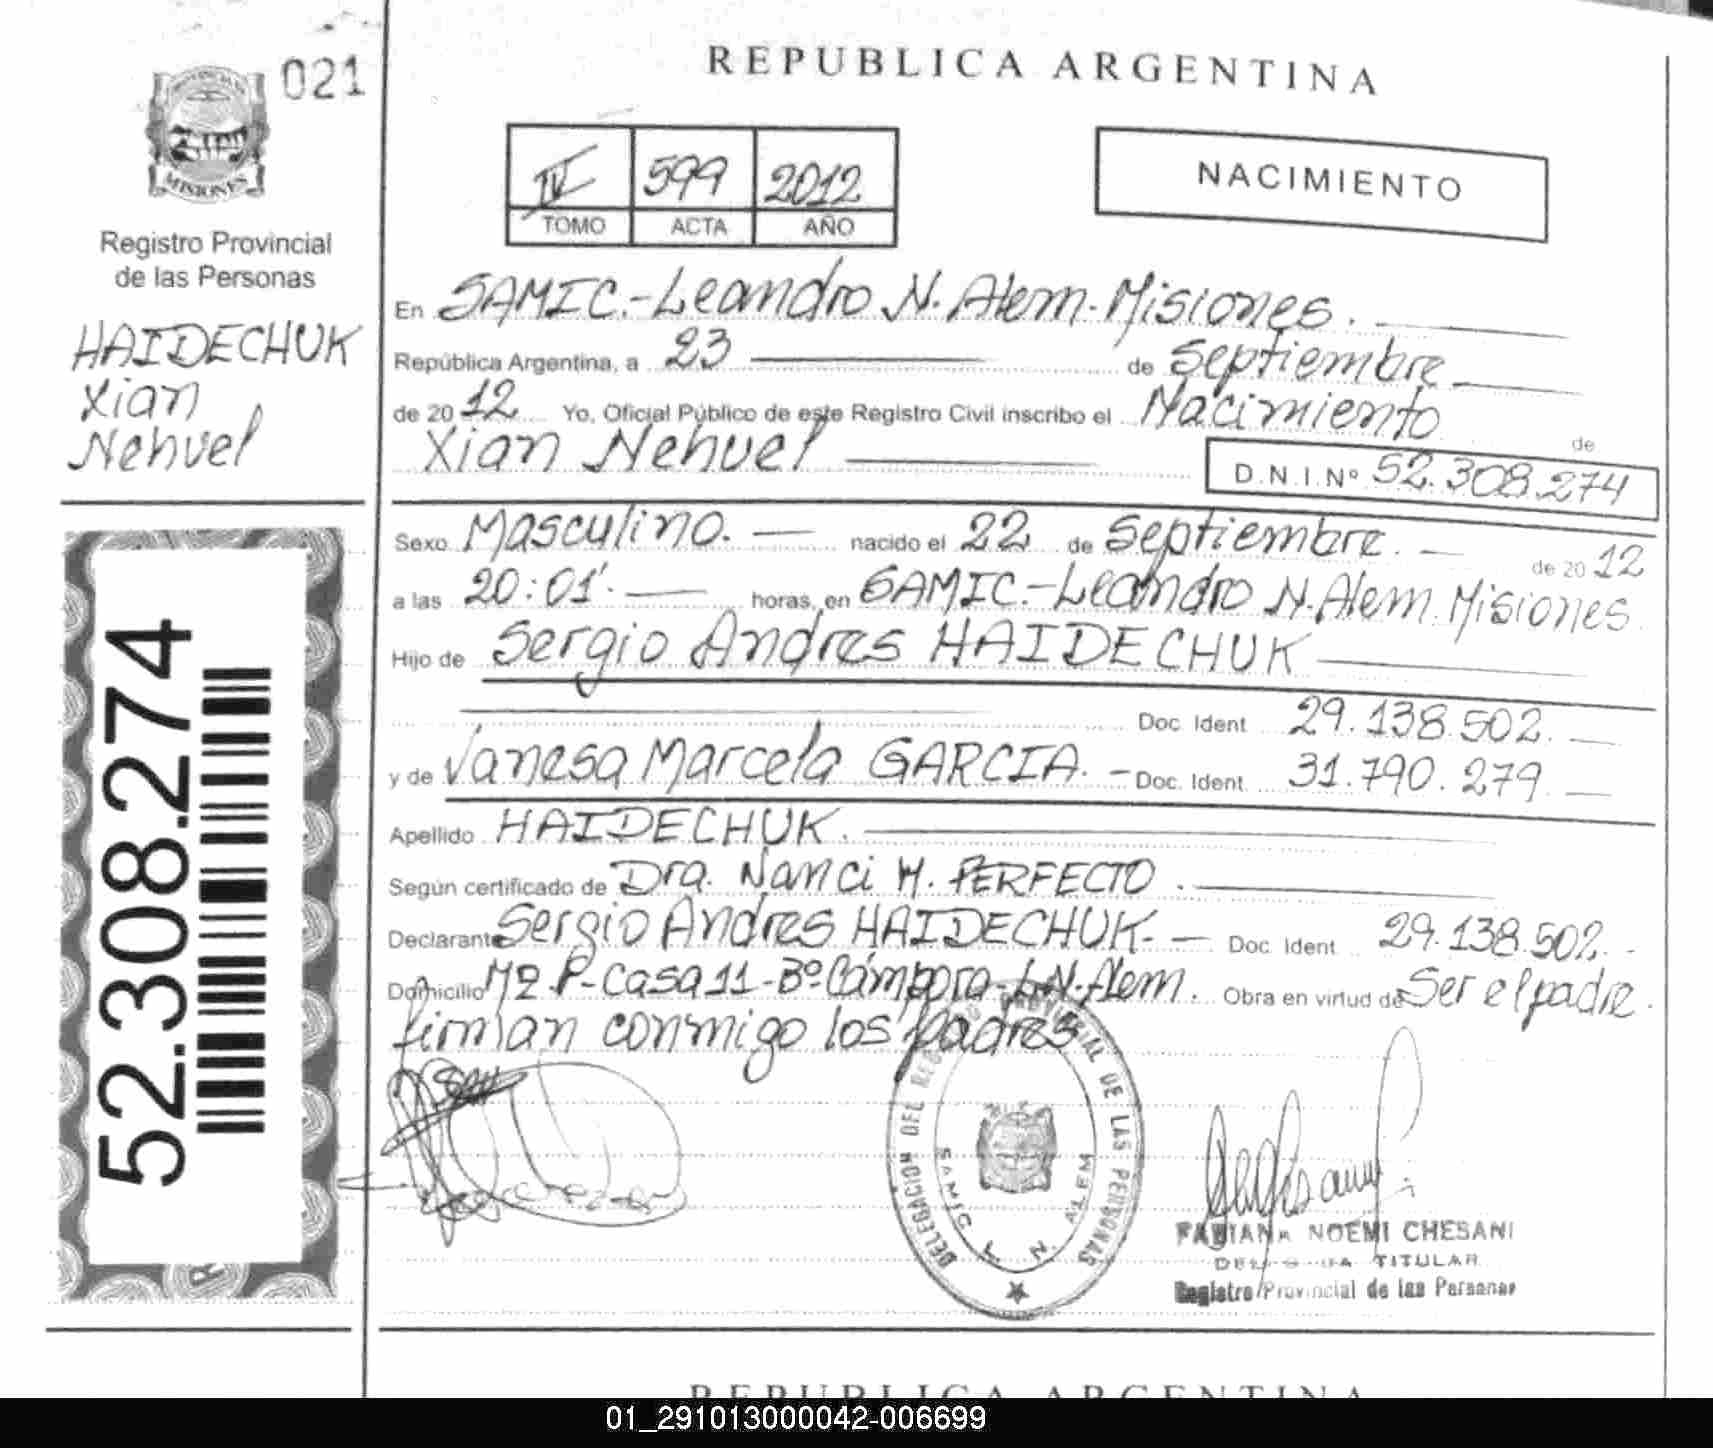 021
MISIONES
Registro Provincial
de las Personas
HAIDECHUK
Xian
Nehuel
52.308.274
REPUBLICA ARGENTINA
IV 599 2012
TOMO ACTA AÑO
NACIMIENTO
En SAMIC.-Leandro N. Alem-Misiones.
República Argentina, a 23 de Septiembre
de 2012 Yo, Oficial Público de este Registro Civil inscribo el Nacimiento de
Xian Nehuel
D.N.I.Nº 52.308.274
Sexo Masculino. nacido el 22 de Septiembre. de 2012
a las 20:01'. horas, en SAMIC.-Leandro N. Alem. Misiones
Hijo de Sergio Andres HAIDECHUK
Doc. Ident 29.138.502.
y de Vanesa Marcela GARCIA. - Doc. Ident 31.790.279
Apellido HAIDECHUK.
Según certificado de Dra. Nanci M. PERFECTO.
Declarante Sergio Andres HAIDECHUK. - Doc. Ident 29.138.502.-
Domicilio Mz P-Casa 11-Bº Cámpora-L.N.Alem. Obra en virtud de Ser el padre.
firman conmigo los padres
DELEGACION DEL REGISTRO PROVINCIAL DE LAS PERSONAS
SAMIC L. N. ALEM
FABIANA NOEMI CHESANI
DELEGADA TITULAR
Registro Provincial de las Personas
REPUBLICA ARGENTINA
01_291013000042-006699